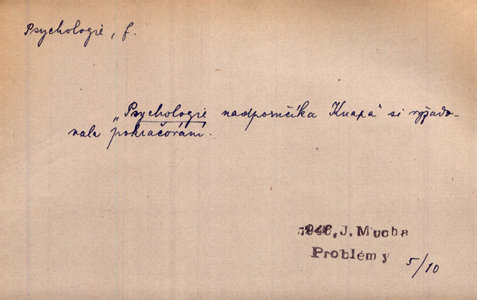 Psychologie, f.
„Psychologie nadporučíka Knapa“ si vyžado-
vala pokračování.
1946, J. Mucha
Problémy 5/10